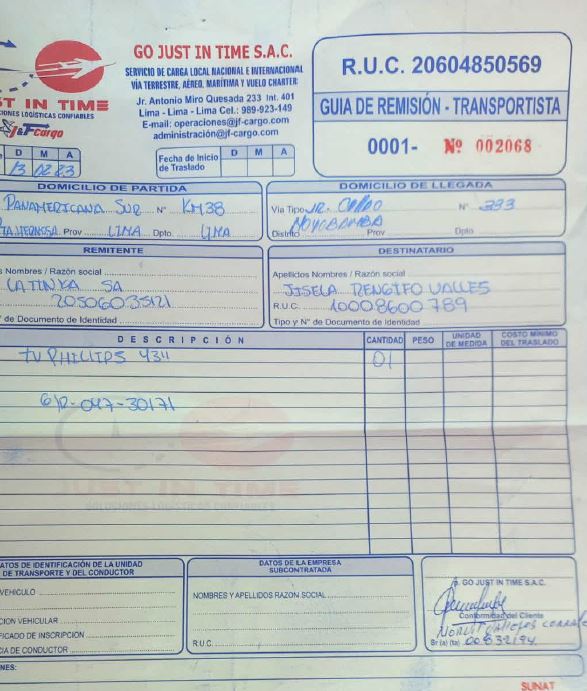 GO JUST IN TIME S.A.C.
SERVICIO DE CARGA LOCAL NACIONAL E INTERNACIONAL
VÍA TERRESTRE, AÉREO, MARÍTIMA Y VUELO CHARTER
Jr. Antonio Miro Quesada 233 Int. 401
Lima - Lima - Lima Cel.: 989-923-149
E-mail: operaciones@jf-cargo.com
administración@jf-cargo.com
R.U.C. 20604850569
GUIA DE REMISIÓN - TRANSPORTISTA
0001- Nº 002068
ST IN TIME
CIONES LOGÍSTICAS CONFIABLES
J&F Cargo
D M A
Fecha de Inicio de Traslado D M A
DOMICILIO DE PARTIDA
PANAMERICANA SUR Nº KM38
Prov LIMA Dpto. LIMA
DOMICILIO DE LLEGADA
Vía Tipo JR. Nº 393
Distrito MOYOBAMBA Prov Dpto
REMITENTE
s Nombres / Razón social
LATINKA SA
20506035121
º de Documento de Identidad
DESTINATARIO
Apellidos Nombres / Razón social
JISELA RENGIFO VALLES
R.U.C. 10008600789
Tipo y Nº de Documento de Identidad
DESCRIPCIÓN CANTIDAD PESO UNIDAD DE MEDIDA COSTO MÍNIMO DEL TRASLADO
TV PHILIPS 43" 01
612-047-30171
JUST IN TIME
SOLUCIONES LOGÍSTICAS CONFIABLES
ATOS DE IDENTIFICACIÓN DE LA UNIDAD
DE TRANSPORTE Y DEL CONDUCTOR
VEHICULO
CION VEHICULAR
FICADO DE INSCRIPCION
CIA DE CONDUCTOR
DATOS DE LA EMPRESA
SUBCONTRATADA
NOMBRES Y APELLIDOS RAZON SOCIAL
R.U.C.
p. GO JUST IN TIME S.A.C.
Conformidad del Cliente
Sr (a) (ta) 00832194
NES:
SUNAT